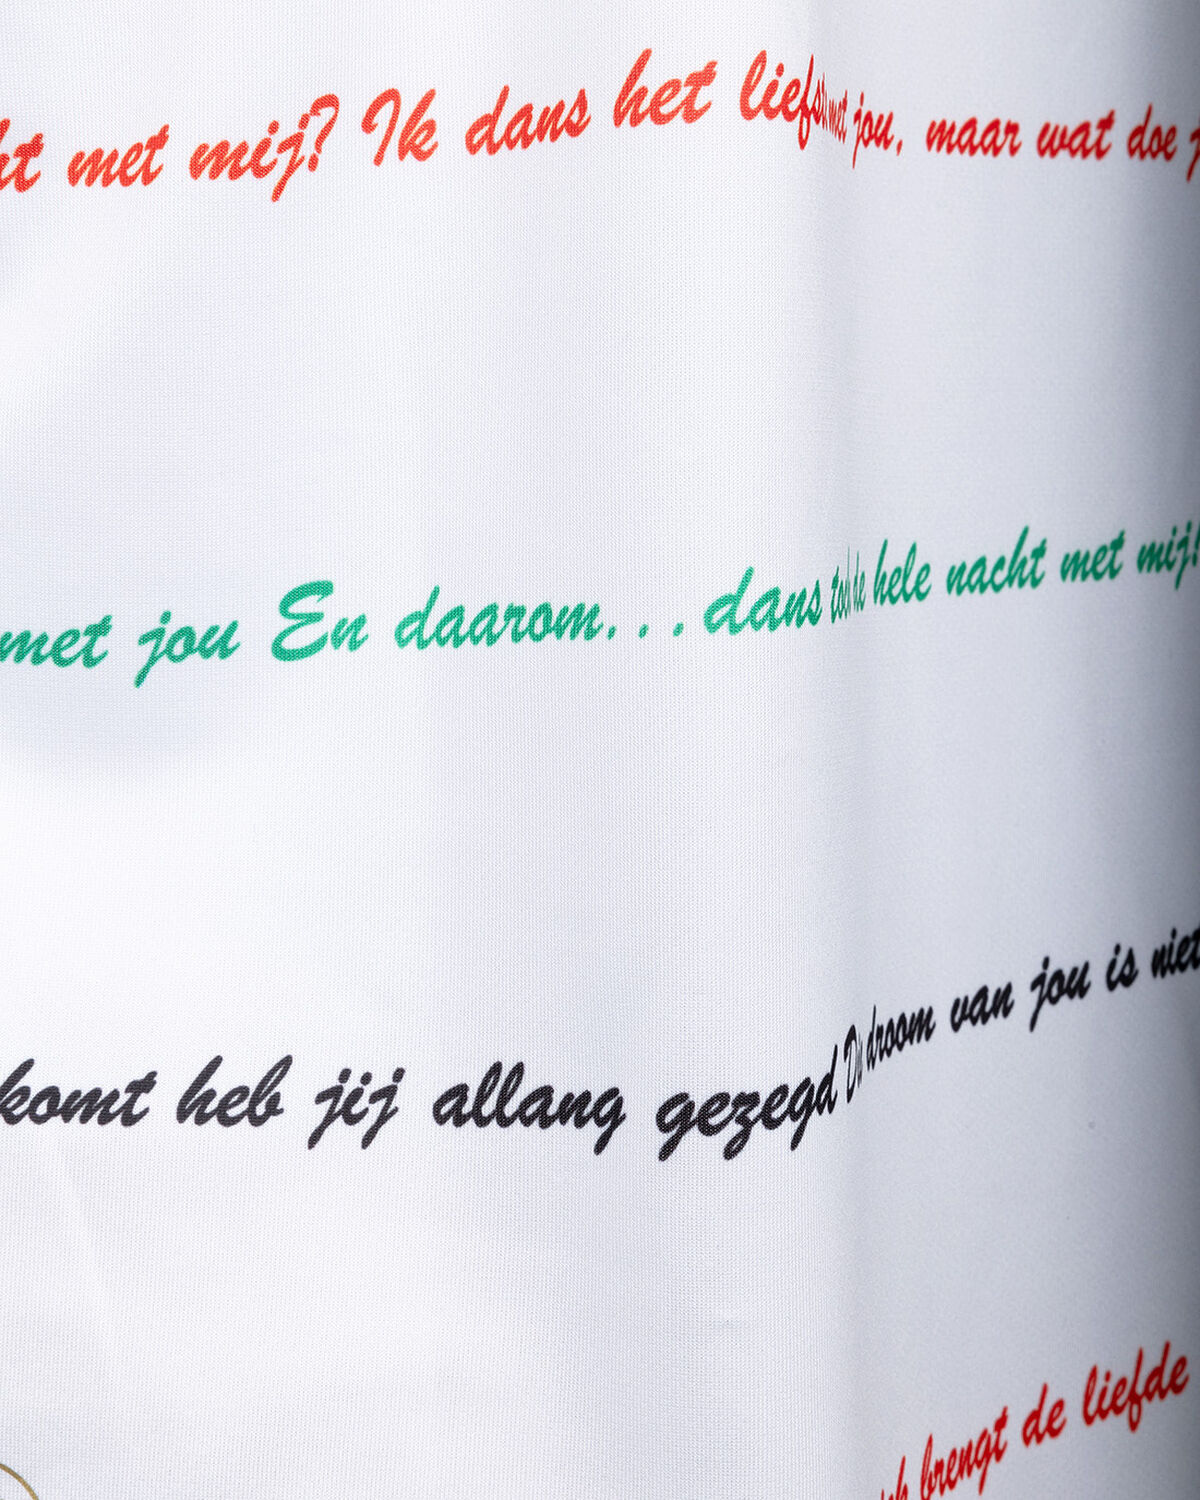 met mij? Ik dans het liefst met jou, maar wat doe
met jou En daarom... dans toch de hele nacht met mij!
komt heb jij allang gezegd De droom van jou is niet
brengt de liefde